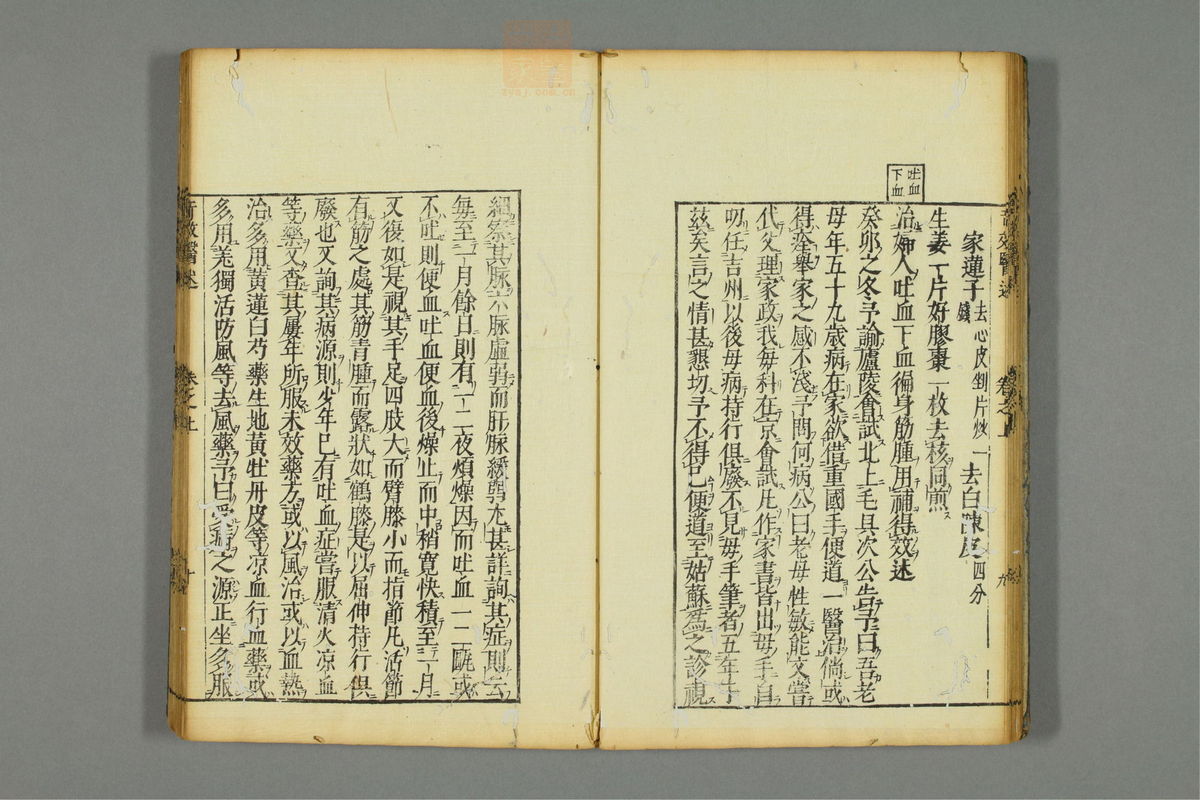 吐血
下血
家蓮子去心皮剉片炒一錢 去白陳皮四分
生姜一片好膠棗一枚去核同煎
治婦人吐血下血徧身筋腫用補得效述
癸卯之冬予諭廬陵會試北上毛具次公告予曰吾老
母年五十九歲病在家欲借重國手便道一醫治倘或
得痊舉家之感不淺予問何病公曰老母性敏能文嘗
代父理家政我每科在京會試凡作家書皆出母手自
叨任吉州以後母病持行俱廢不見母手筆者五年于
茲矣言之情甚懇切予不得已便道至姑蘇爲之診視
細察其脉六脉虛弱而肝脉緩弱尢甚詳詢其症則云
每至一月餘日則有一二夜煩燥因而吐血一二甌或
不吐則便血吐血便血後燥止而中稍寬快積至一月
又復如是視其手足四肢大而臂膝小而指節凡活節
有筋之處其筋青腫而露狀如鶴膝是以屈伸持行俱
廢也又詢其病源則少年已有吐血症嘗服清火凉血
等藥又查其屢年所服未效藥方或以風治或以血熱
治多用黃蓮白芍藥生地黃牡丹皮等凉血行血藥或
多用羌獨活防風等去風藥予曰受病之源正坐多服
奇效醫述 卷之上 九
奇效醫述 卷之上 十